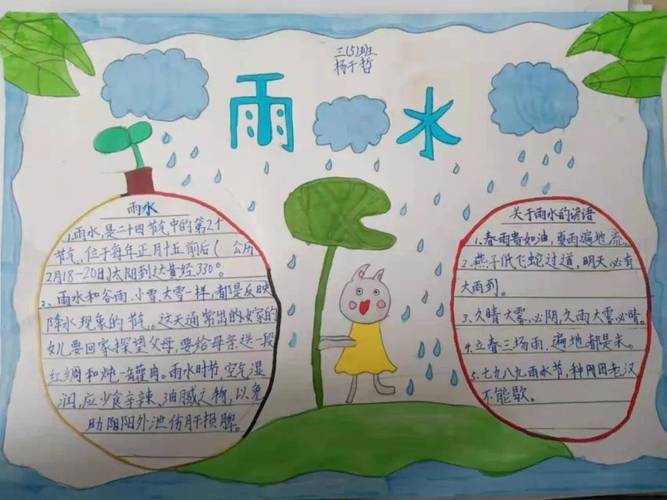 三(5)班
杨于哲
雨水
雨水
1.雨水,是二十四节气中的第2个
节气,位于每年正月十五前后(公历
2月18-20日)太阳到达黄经330°
2、雨水和谷雨、小雪、大雪一样,都是反映
降水现象的节气。这天通常出的嫁的
女儿要回家探望父母,要给母亲送一段
红绸和炖一罐肉。雨水时节,空气湿
润,应少食辛辣、油腻之物,以免
助阳外泄伤肝损脾。
关于雨水的谚语
1、春雨贵如油,夏雨遍地流。
2.燕子低飞蛇过道,明天必有
大雨到。
3、久晴大雾必阴,久雨大雾必晴。
4.立春三场雨,遍地都是米。
5.七九八九雨水节,种田老汉
不能歇。